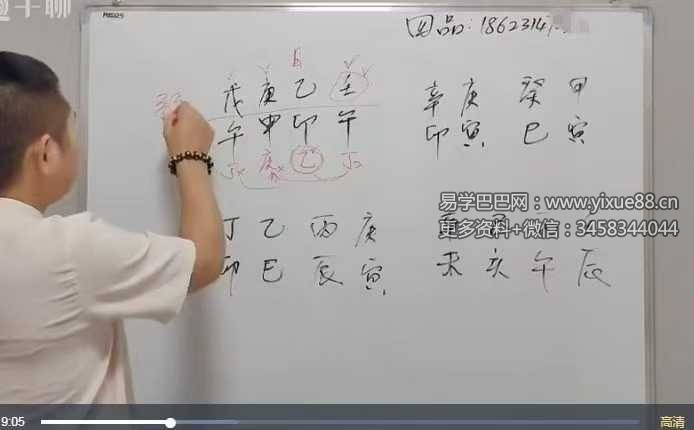 千聊
因品:18623147
日
戊庚乙壬
午申卯午
丁 庚 乙 丁
辛庚癸甲
卯寅巳寅
易学巴巴网:www.yixue88.cn
更多资料+微信:3458344044
丁乙丙庚
卯巳辰寅
未亥午辰
9:05
高清